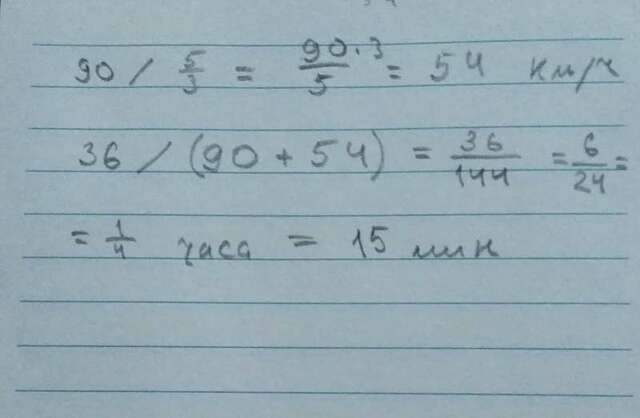 90 / 5/3 = 90·3/5 = 54 км/ч
36 / (90 + 54) = 36/144 = 6/24 =
= 1/4 часа = 15 мин